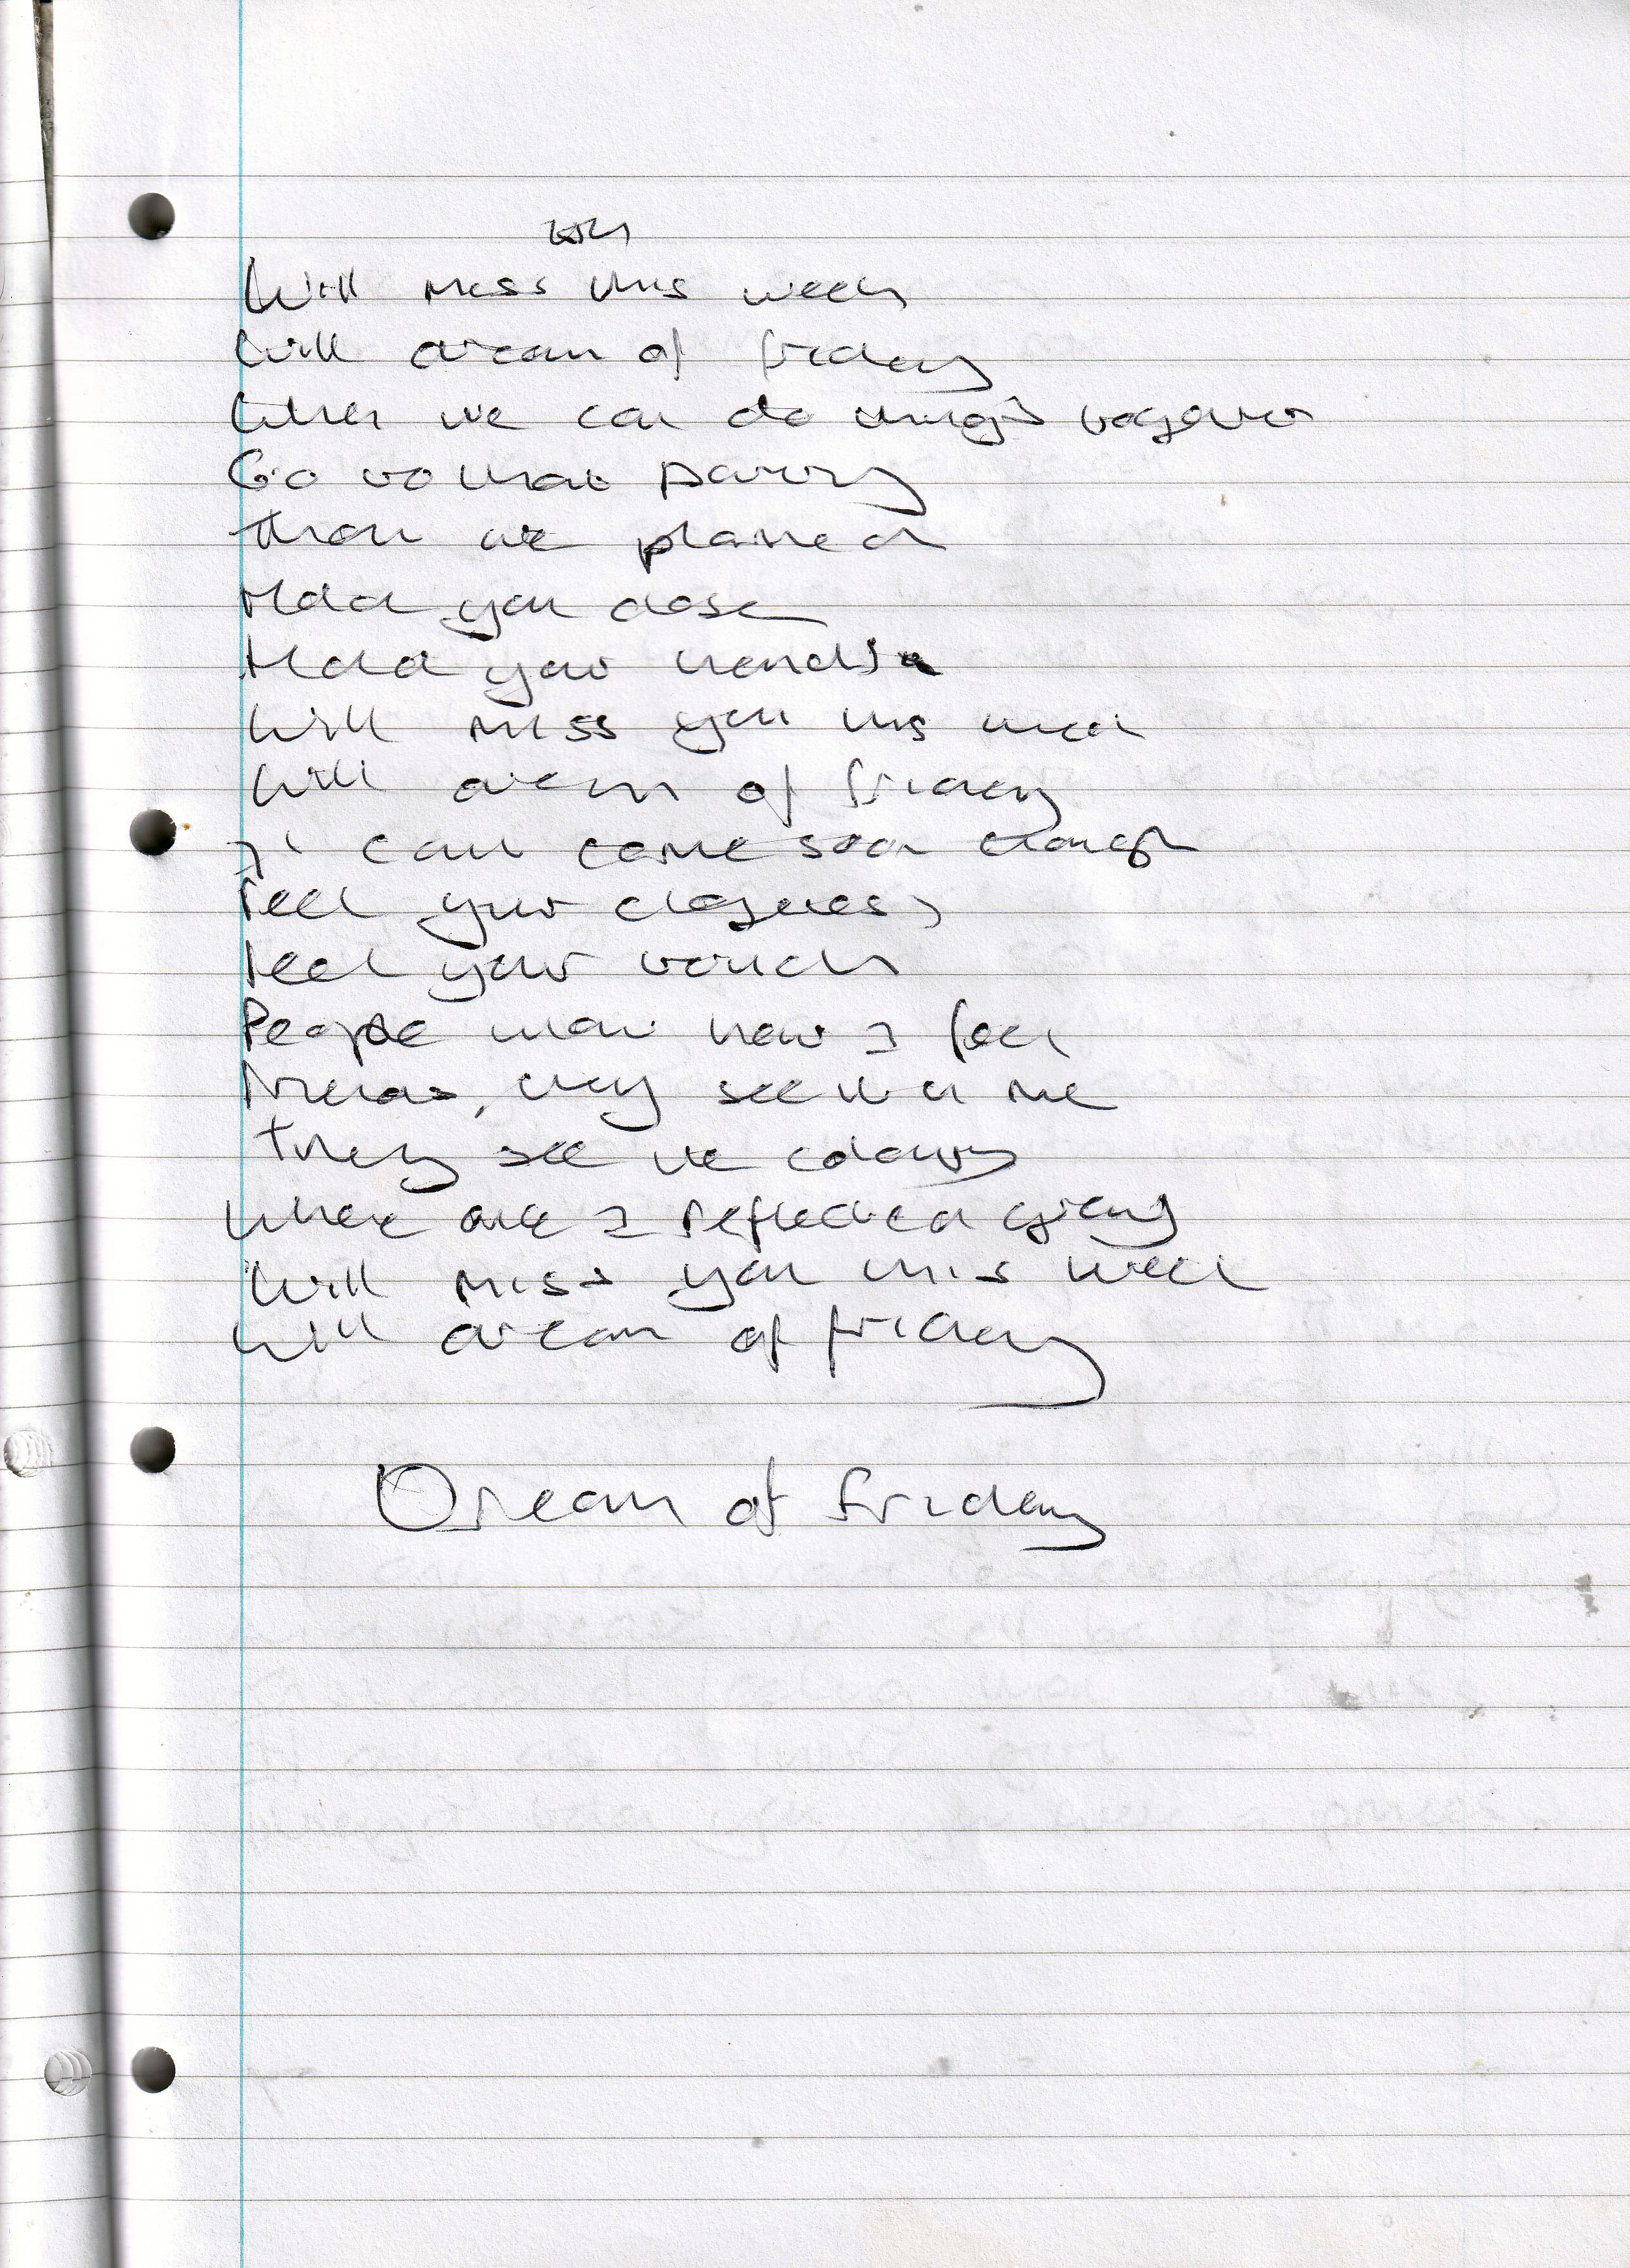 you
Will miss this week
Will dream of friday
When we can do things together
Go to that party
That we planned
Hold you close
Hold your hand
Will miss you this week
Will dream of friday
It can't come soon enough
Feel your closeness
Feel your touch
People know how I feel
they see it in me
They see it clearly
Where are I reflected
Will miss you this week
Will dream of friday
Dream of Friday